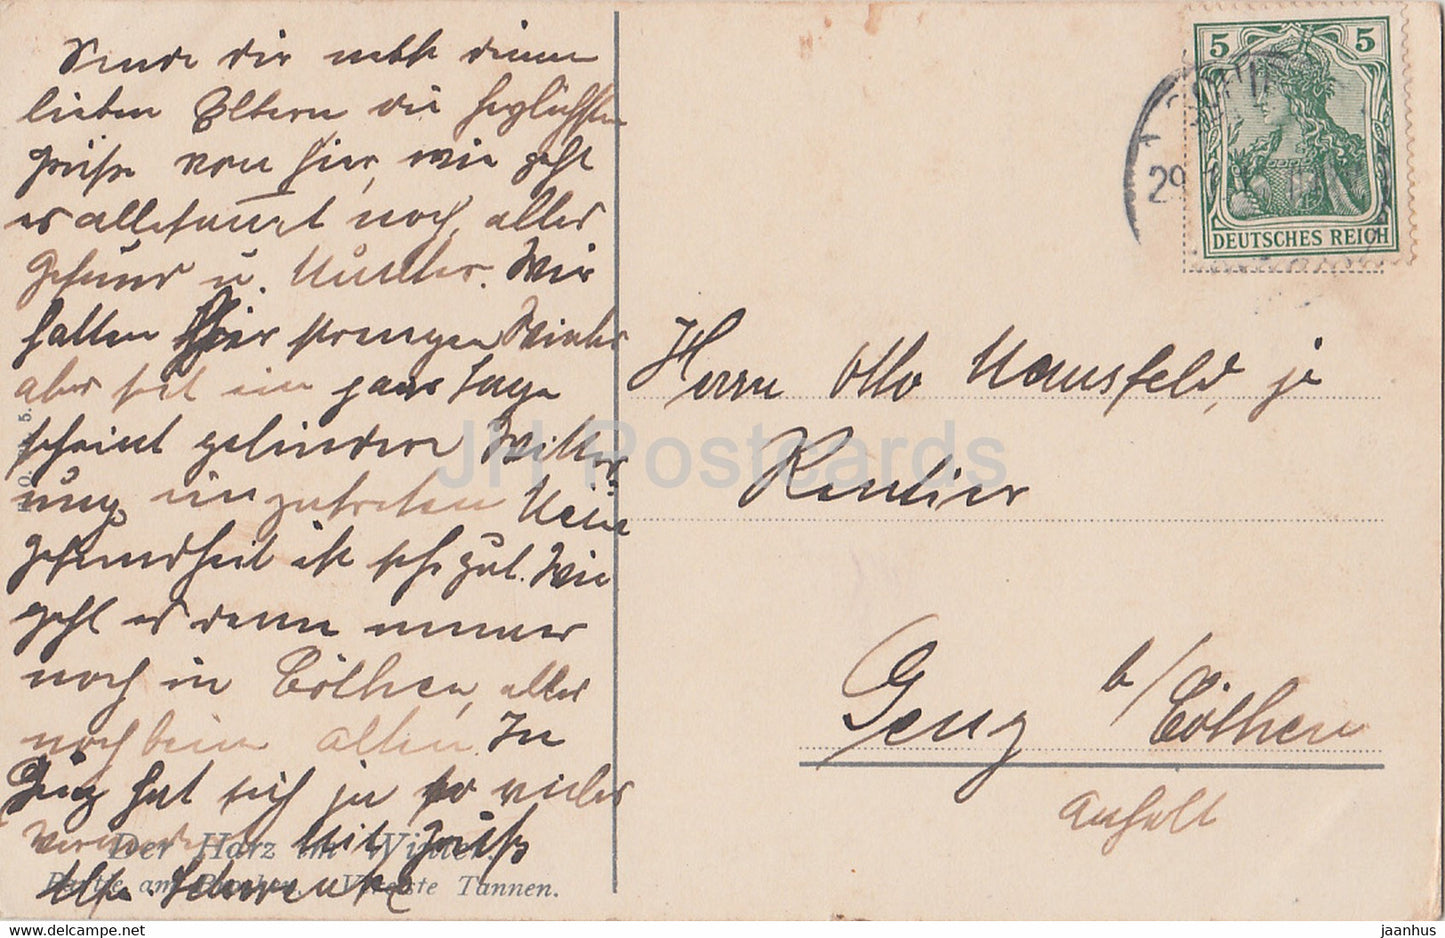 Sende dir nebst deinen
lieben Eltern die herzlichsten
Grüße von hier, wie geht
es allesamt noch, alles
Gesund u. Munter. Wir
hatten hier strengen Winter
aber seit ein paar Tage
scheint gelindere Witter
ung einzutreten Meine
Gesundheit ist sehr gut. Wie
geht es denn immer
noch in Cöthen, alles
noch beim alten. In
Genz hat sich ja so vieles
verändert. Mit Gruß
Otto Schwenke
Der Harz im Winter
Partie am Brocken. Vereiste Tannen.
5.
5 5
DEUTSCHES REICH
29
Herrn Otto Mansfeld, je
Rentier
Genz b/ Cöthen
Anhalt
JH Postcards
jaanhus